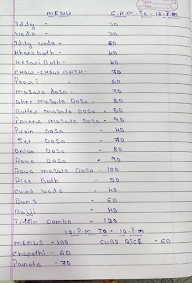 MENU 6.A.M. To - 12.P.M
Iddly - 30
Vada - 30
Iddly Vada - 60
Kharabath - 40
Kesari Bath - 40
CHOW-CHOW BATH - 70
Poori - 60
Masala Dosa - 70
Ghee Masala Dosa - 80
Butter Masala Dosa - 80
Paneer Masala Dosa - 90
Plain Dosa - 60
Set Dosa - 70
Onion Dosa - 80
Rava Dosa - 90
Rava Masala Dosa - 100
Rice Bath - 50
Curd Vada - 40
Buns - 60
Bajji - 40
Tiffin Combo - 130
12.P.M To - 10.P.M
MEALS - 100 CURD RICE - 60
Chapathi - 60
Parota - 70